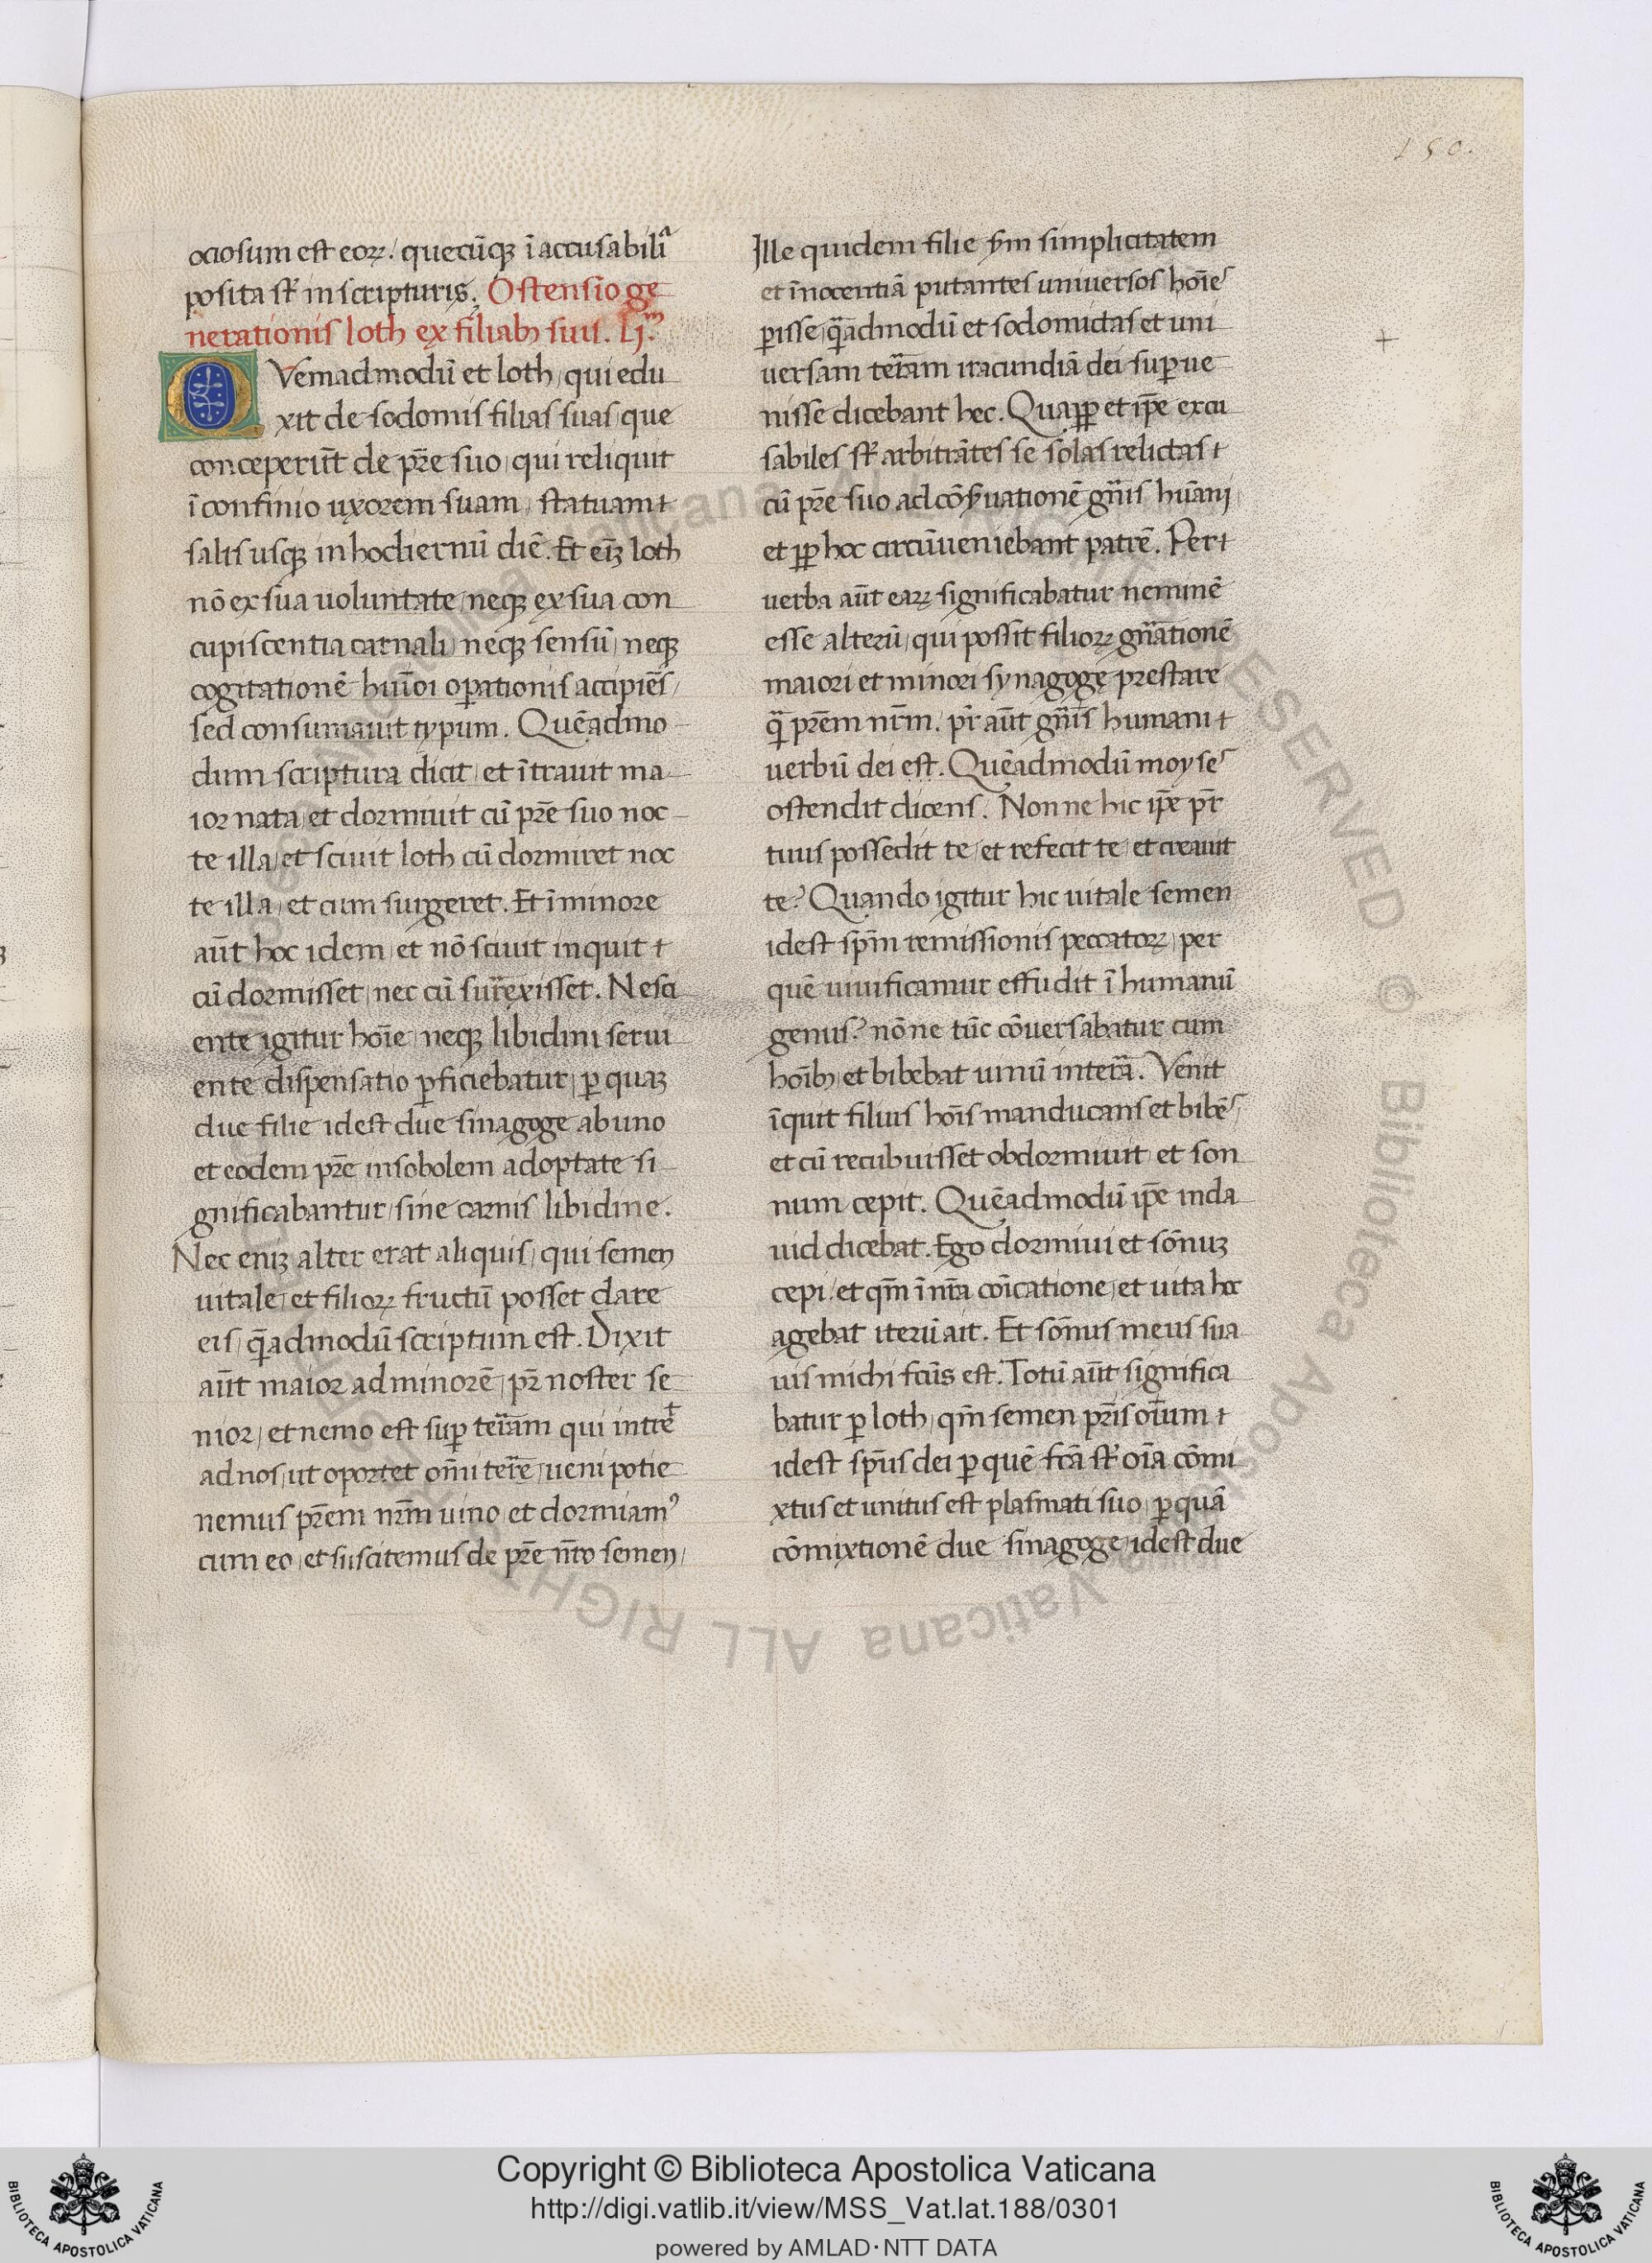 150.
ociosum est eoꝝ. quecūqꝫ ī accusabiliᵃ
posita sᵗ in scripturis. Ostensio ge
nerationis loth ex filiabꝫ suis. Lj.ᵐ
QVemadmodū et loth, qui edu
xit de sodomis filias suas, que
conceperūt de pr̄e suo, qui reliquit
ī confinio uxorem suam, statuam
salis usqꝫ in hodiernū diē. Et eiꝫ loth
nō ex sua uoluntate, neqꝫ ex sua con
cupiscentia carnali, neqꝫ sensū, neqꝫ
cogitationē huīoi oꝑationis accipiēs,
sed consumauit typum. Quēadmo
dum scriptura dicit, et ītrauit ma
ior nata, et dormiuit cū pr̄e suo noc
te illa, et sciuit loth cū dormiret noc
te illa, et cum surgeret. Et ī minore
aūt hoc idem, et nō sciuit inquit
cū dormisset, nec cū surrexisset. Nesci
ente igitur hoīe, neqꝫ libidini serui
ente dispensatio ꝑficiebatur, ꝑ quaꝫ
due filie idest due sinagoge ab uno
et eodem pr̄e in sobolem adoptate si
gnificabantur, sine carnis libidine.
Nec eniꝫ alter erat aliquis, qui semen
uitale, et filioꝝ fructū posset dare
eis, qēadmodū scriptum est. Dixit
aūt maior ad minorē, pr̄ noster se
nior, et nemo est suꝑ terram qui intrēt
ad nos, ut oportet om̄i terrē, ueni potie
nemus pr̄em nr̄m uino, et dormiamꝰ
cum eo, et suscitemus de pr̄e nr̄o semen,
Ille quidem filie ẜm simplicitatem
et īnocentiā putantes uniuersos hoīes
ꝑisse, qēadmodū et sodomitas et uni
uersam terram iracundiā dei suꝑue
nisse dicebant hec. Quaꝓꝑ et ip̄e excu
sabiles sᵗ arbitrātes se solas relictas
cū pr̄e suo ad cōẜuationē gn̄is hūani,
et ꝓꝑ hoc circūueniebant patrē. Per
uerba aūt eaꝝ significabatur neminē
esse alterū, qui possit filioꝝ gn̄ationē
maiori et minori synagogę prestare
qᵃ pr̄em nr̄m. pr̄ aūt gn̄is humani
uerbū dei est. Quēadmodū moyses
ostendit dicens. Nonne hic ip̄e pr̄
tuus possedit te, et refecit te, et creauit
te? Quando igitur hic uitale semen
idest sp̄m remissionis peccatoꝝ, per
quē uiuificamur effudit ī humanū
genus? nōne tūc cōuersabatur cum
hoībꝫ, et bibebat uinū in terra. Venit
īquit filius hoīs manducans et bibēs,
et cū recubuisset obdormiuit, et son
num cepit. Quēadmodū ip̄e in da
uid dicebat. Ego dormiui et sōnuꝫ
cepi. et qm̄ ī nr̄a coīcatione, et uita hoc
agebat iterū ait. Et sōnus meus sua
uis michi fcūs est. Totū aūt significa
batur ꝑ loth, qm̄ semen pr̄is oīum
idest sp̄us dei ꝑ quē fcā sᵗ oīa cōmi
xtus et unitus est plasmati suo, ꝑ quā
cōmixtionē due sinagoge, idest due
Copyright © Biblioteca Apostolica Vaticana
http://digi.vatlib.it/view/MSS_Vat.lat.188/0301
powered by AMLAD·NTT DATA
BIBLIOTECA APOSTOLICA VATICANA
BIBLIOTECA APOSTOLICA VATICANA